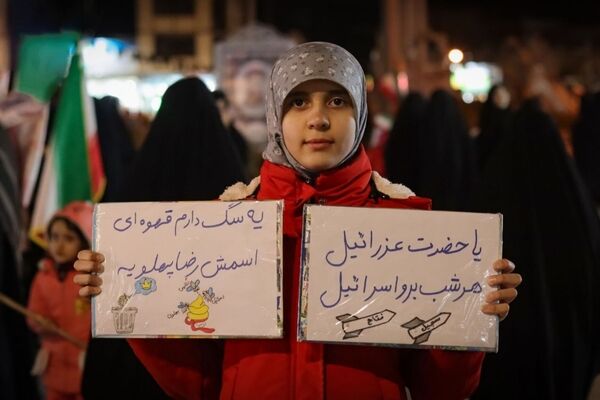 یه سگ دارم قهوه‌ای
اسمش رضا پهلویه
یا حضرت عزرائیل
هر شب برو اسرائیل
فتاح
سجیل